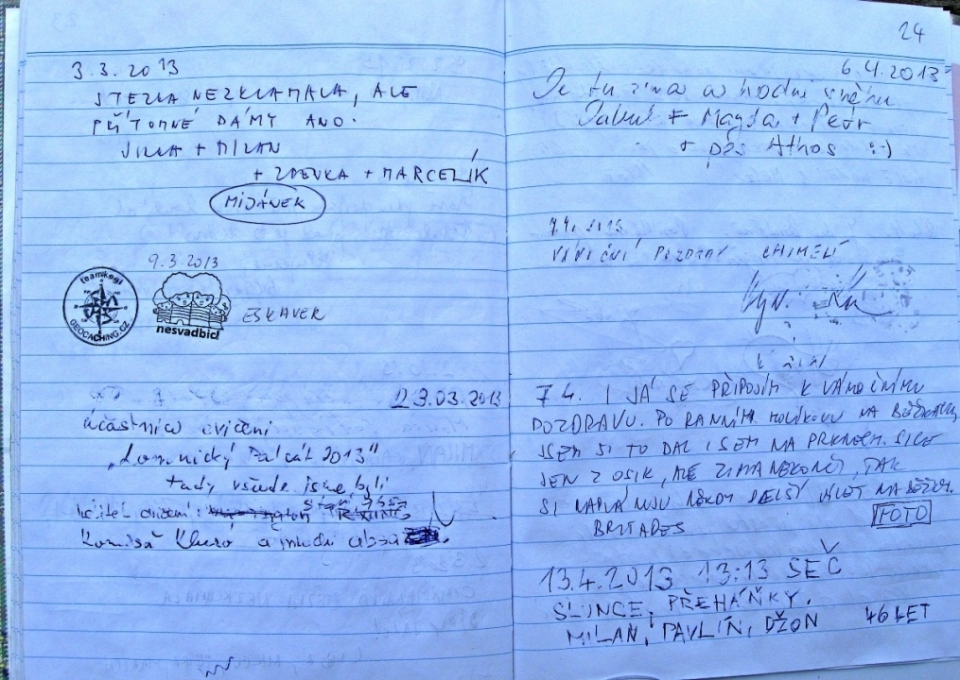 3.3.2013
STEZKA NEZKLAMALA, ALE
PŘÍTOMNÉ DÁMY ANO.
JIŘKA + MILAN
+ ZDENKA + MARCELÍK
MIDÁNEK
9.3.2013
teamkegi
GEOCACHING.CZ
nesvadbici
ESKAVER
23.03.2013
účastníci cvičení
„Lomnický 2013"
tady všude jsme byli
cvičení:
Komisař a mladí
24
6.4.2013
Je tu zima a hodně sněhu
+ Magda + Petr
+ pes Athos :-)
7.4.2013
VÁNOČNÍ POZDRAV
7.4. I JÁ SE PŘIPOJÍM K VÁNOČNÍMU
POZDRAVU. PO RANNÍM NA BĚŽKÁCH,
JSEM SI TO DAL I SEM NA PRKNECH. SICE
JEN Z OSIK, ALE ZIMA NEKONČÍ, TAK
SI NAPLÁNUJU DALŠÍ VÝLET NA BĚŽK.
BRITADES
FOTO
13.4.2013 13:13 SEČ
SLUNCE, PŘEHÁŇKY.
MILAN, PAVLÍN, DŽON 46 LET